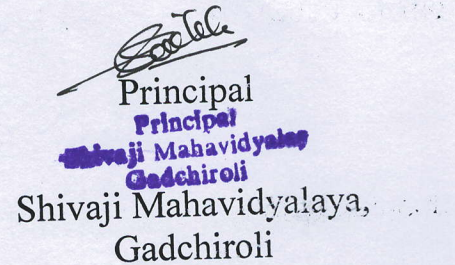 Principal
Principal
Shivaji Mahavidyalay
Gadchiroli
Shivaji Mahavidyalaya,
Gadchiroli